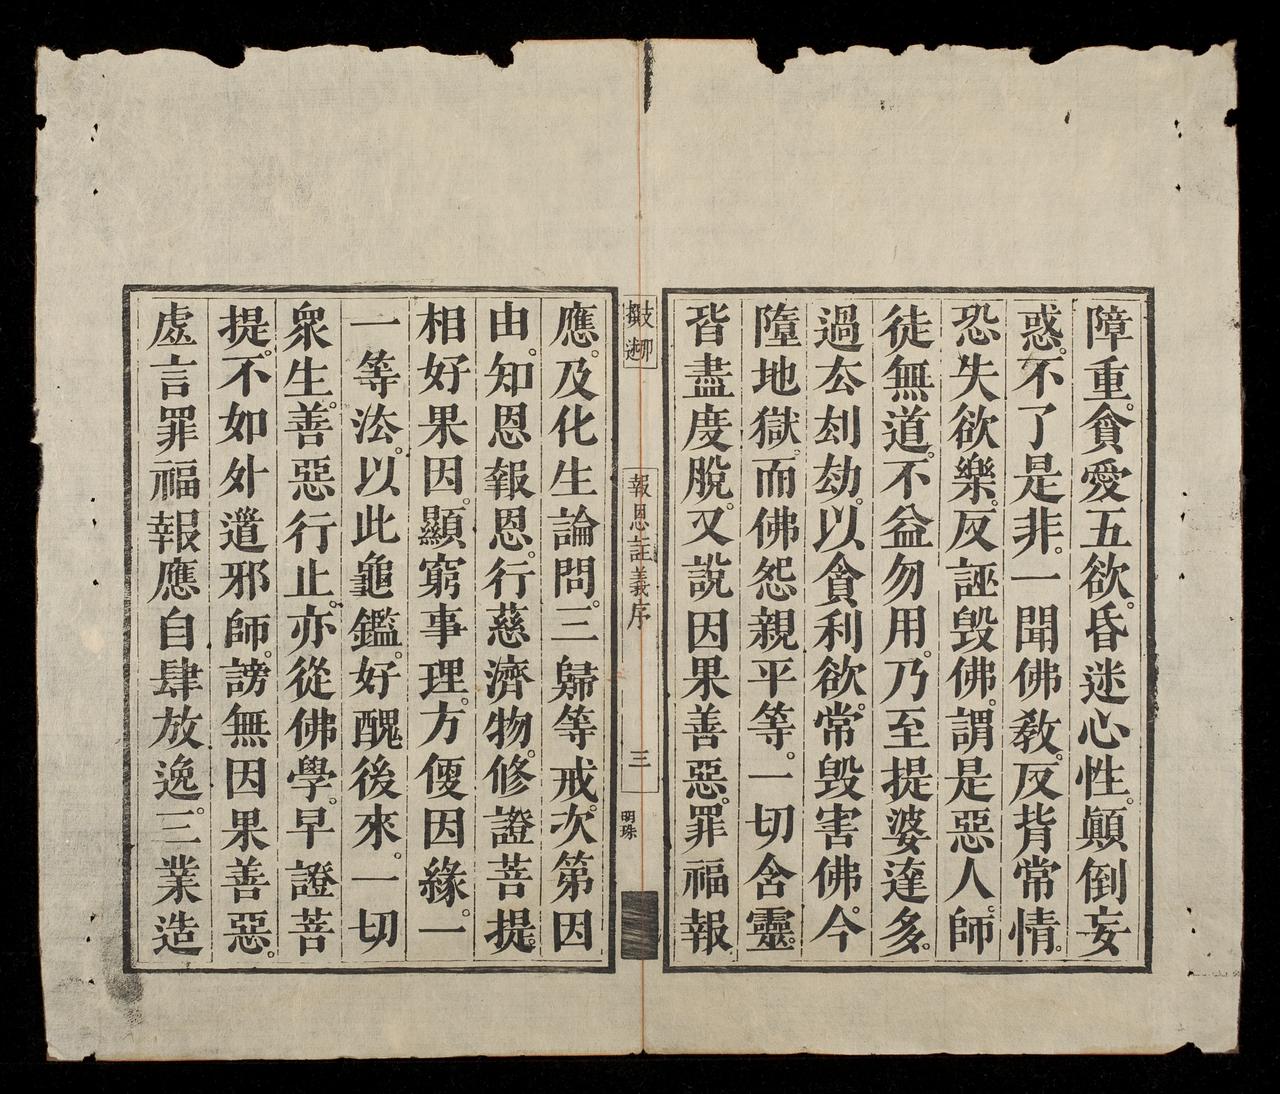 障重。貪愛五欲。昏迷心性。顚倒妄
惑。不了是非。一聞佛敎。反背常情。
恐失欲樂。反誣毀佛。謂是惡人。師
徒無道。不益勿用。乃至提婆達多。
過厺刦劫。以貪利欲。常毀害佛。今
墮地獄。而佛怨親平等。一切含靈。
皆盡度脫。又說因果善惡。罪福報
報恩註義序
三
明珠
應。及化生論問。三歸等戒。次第因
由。知恩報恩。行慈濟物。修證菩提。
相好果因。顯窮事理。方便因緣。一
一等法。以此龜鑑。好醜後來。一切
衆生。善惡行止。亦從佛學。早證菩
提。不如外道邪師。謗無因果善惡。
處言罪福報應自肆放逸。三業造